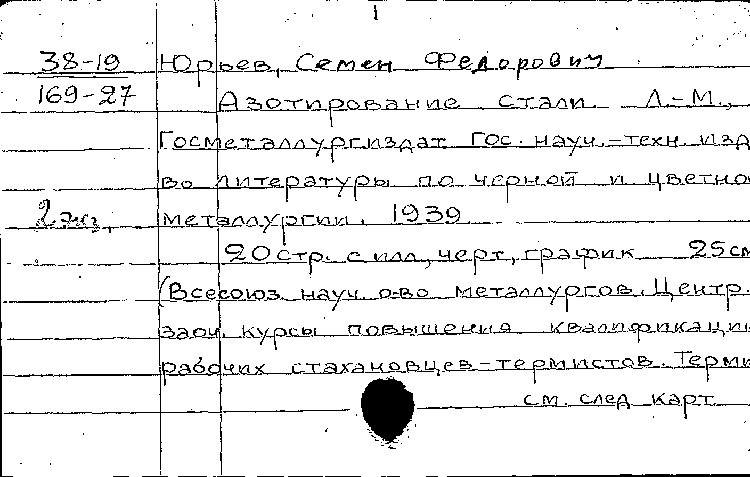 1
38-19 Юрьев, Семен Федорович
169-27 Азотирование стали. Л.-М.,
Госметаллургиздат Гос. науч.-техн. изд
во литературы по черной и цветно
2 экз. металлургии. 1939
20 стр. с илл, черт, график 25 см
(Всесоюз. науч. о-во металлургов. Центр.
заоч. курсы повышения квалификации
рабочих стахановцев-термистов. Терми
см. след карт